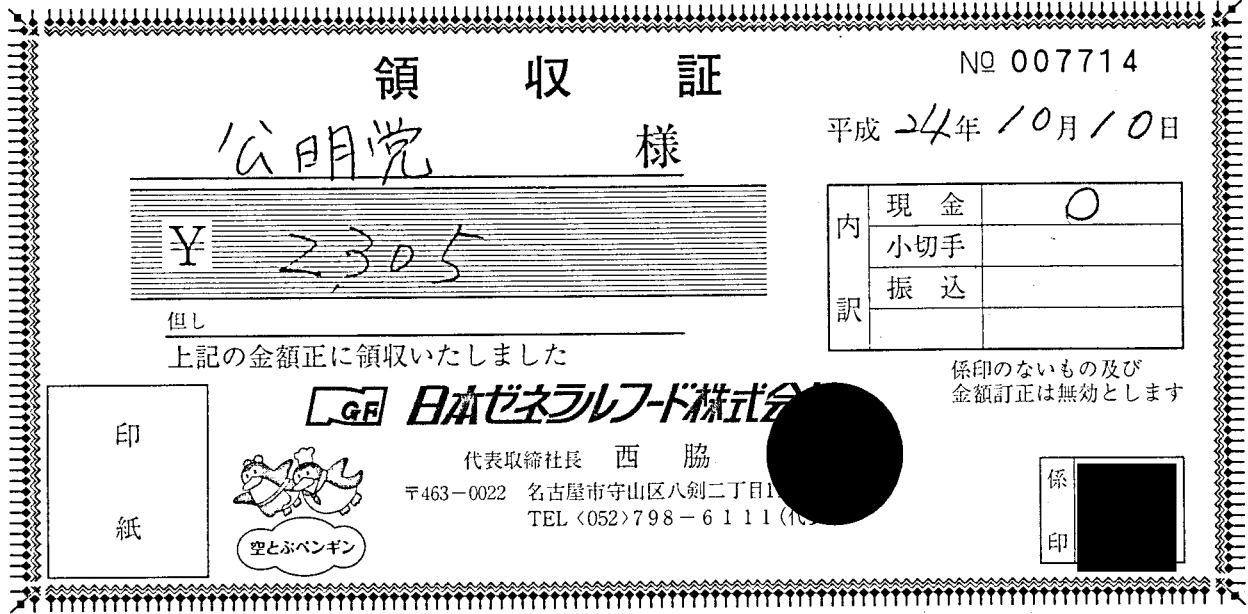 領収証
№ 007714
公明党 様
平成 24年 10月 10日
¥ 2,305
内訳
現金 0
小切手
振込
但し
上記の金額正に領収いたしました
係印のないもの及び
金額訂正は無効とします
印紙
GF 日本ゼネラルフード株式会
代表取締社長 西脇
〒463-0022 名古屋市守山区八剣二丁目1
TEL〈052〉798-6111(代
空とぶペンギン
係印